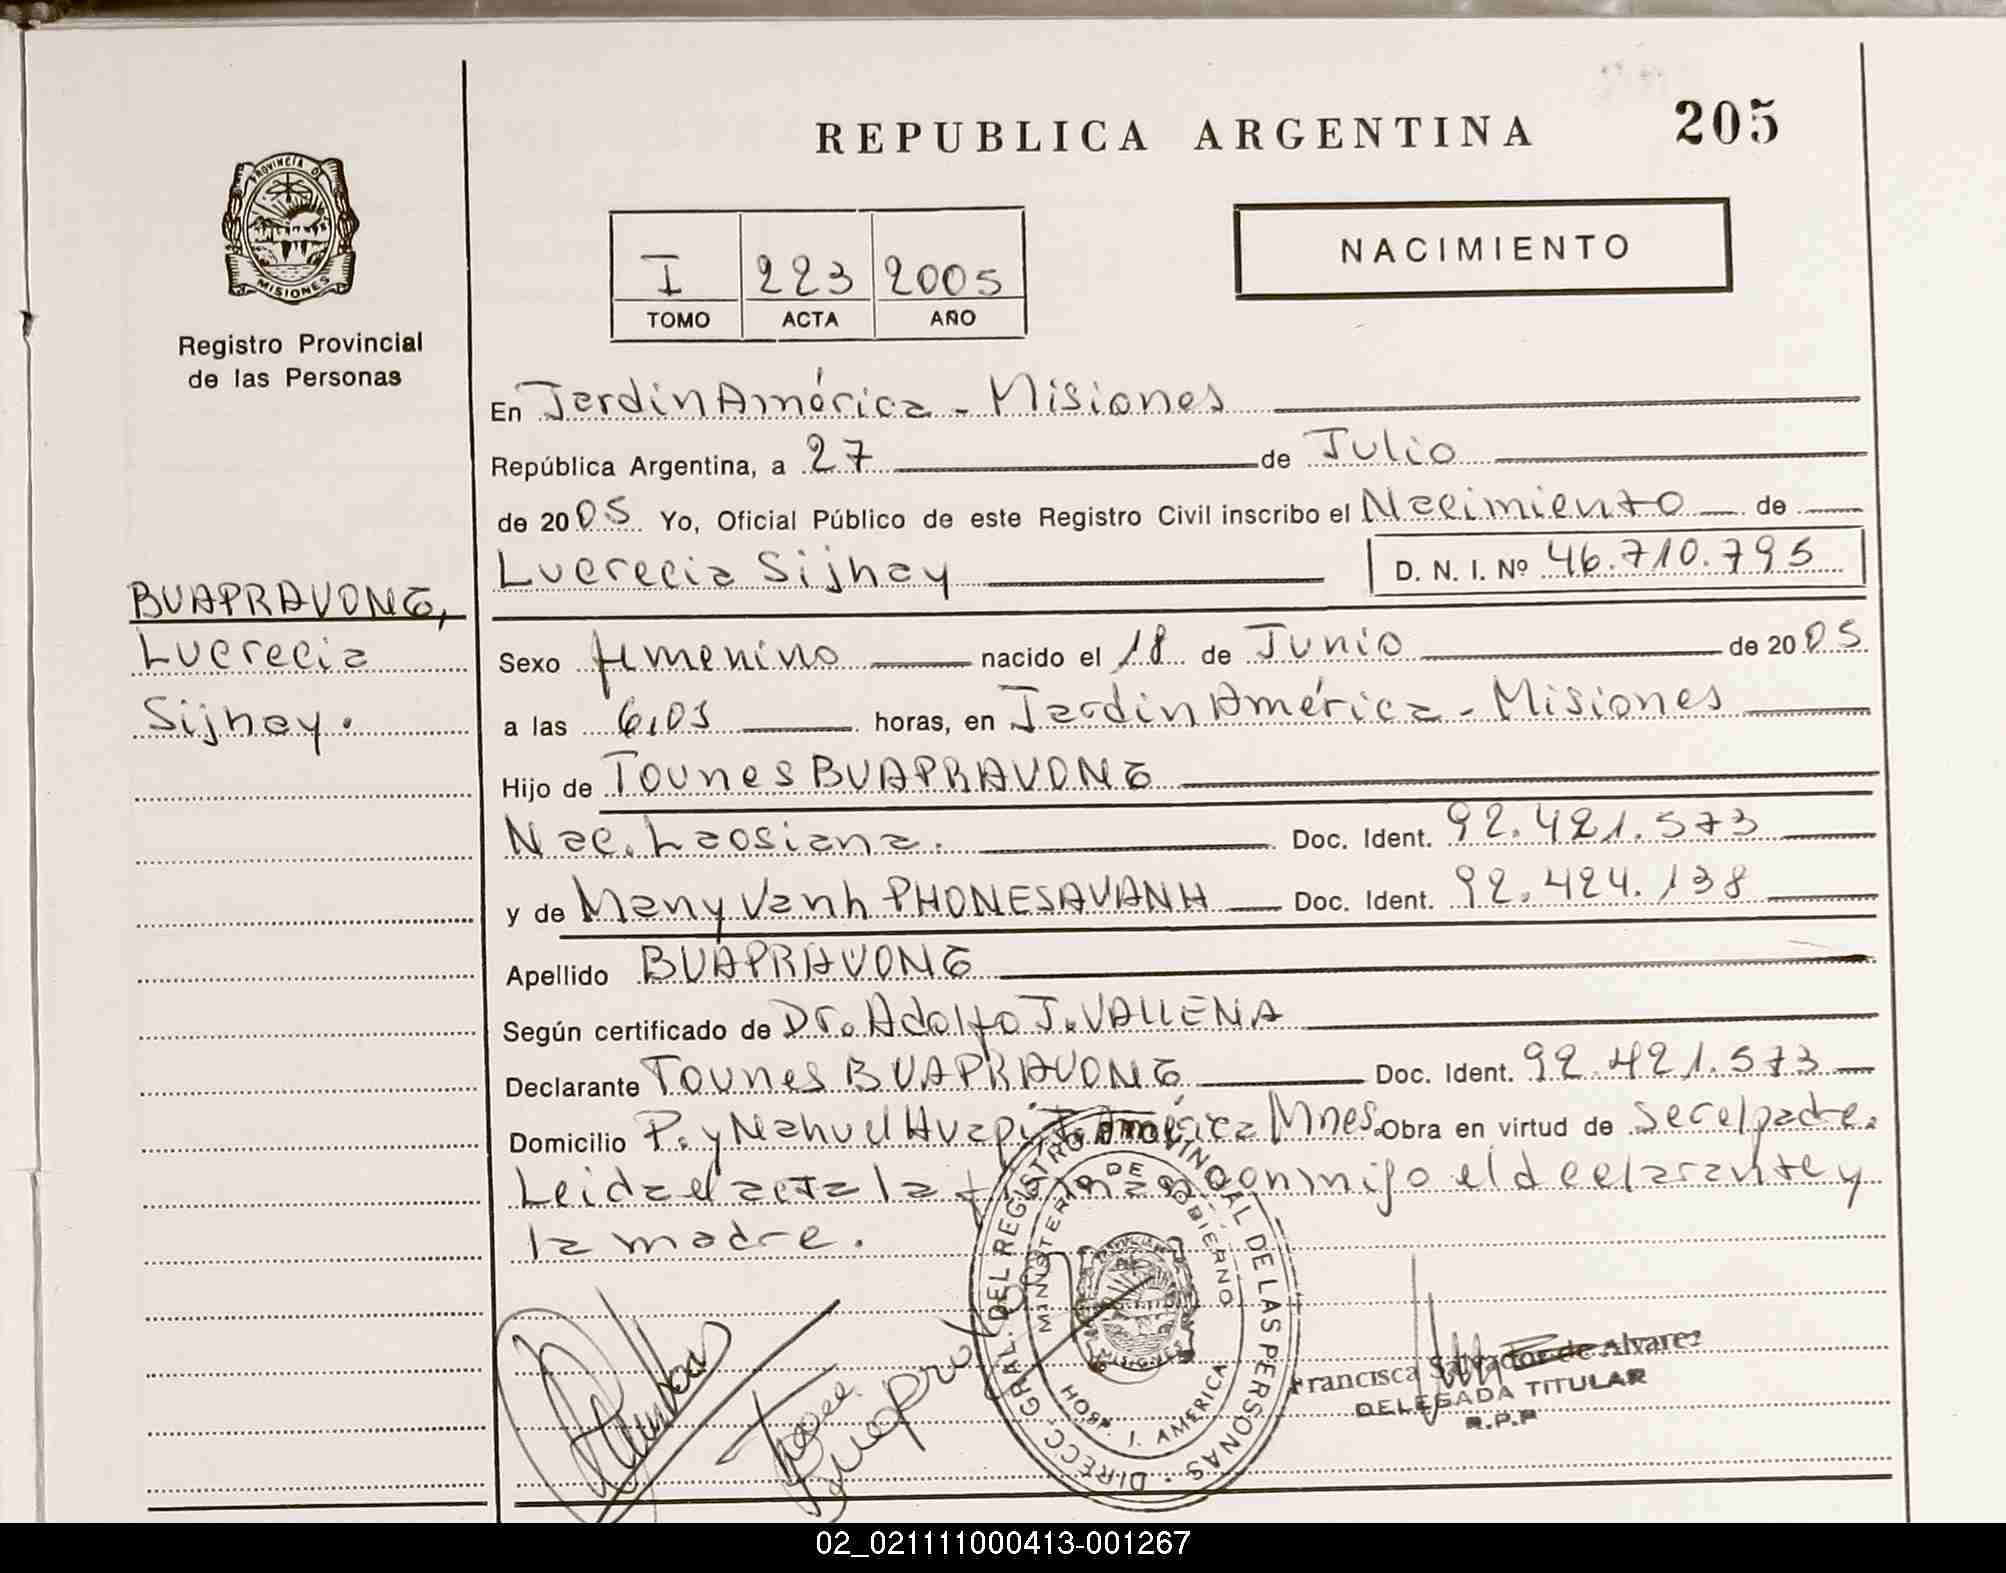 REPUBLICA ARGENTINA
205
PROVINCIA DE
MISIONES
Registro Provincial
de las Personas
I 223 2005
TOMO ACTA AÑO
NACIMIENTO
En Jardín América - Misiones
República Argentina, a 27 de Julio
de 2005 Yo, Oficial Público de este Registro Civil inscribo el Nacimiento de
Lucrecia Sijnay D. N. I. Nº 46.710.795
BUAPRAVONG,
Lucrecia
Sijnay.
Sexo femenino nacido el 18 de Junio de 2005
a las 6,05 horas, en Jardín América - Misiones
Hijo de Tounes BUAPRAVONG
Nac. Laosiana. Doc. Ident. 92.421.573
y de Many Vanh PHONESAVANH Doc. Ident. 92.424.138
Apellido BUAPRAVONG
Según certificado de Dr. Adolfo J. VALLENA
Declarante Tounes BUAPRAVONG Doc. Ident. 92.421.573
Domicilio P. y Nahuel Huapi J. América Mnes. Obra en virtud de ser el padre.
Leida el acta la firman conmigo el declarante y
la madre.
DIRECC. GRAL. DEL REGISTRO PROVINCIAL DE LAS PERSONAS
MINISTERIO DE GOBIERNO
MISIONES
HOSP. J. AMERICA
Francisca Salvador de Alvarez
DELEGADA TITULAR
R.P.P
02_021111000413-001267